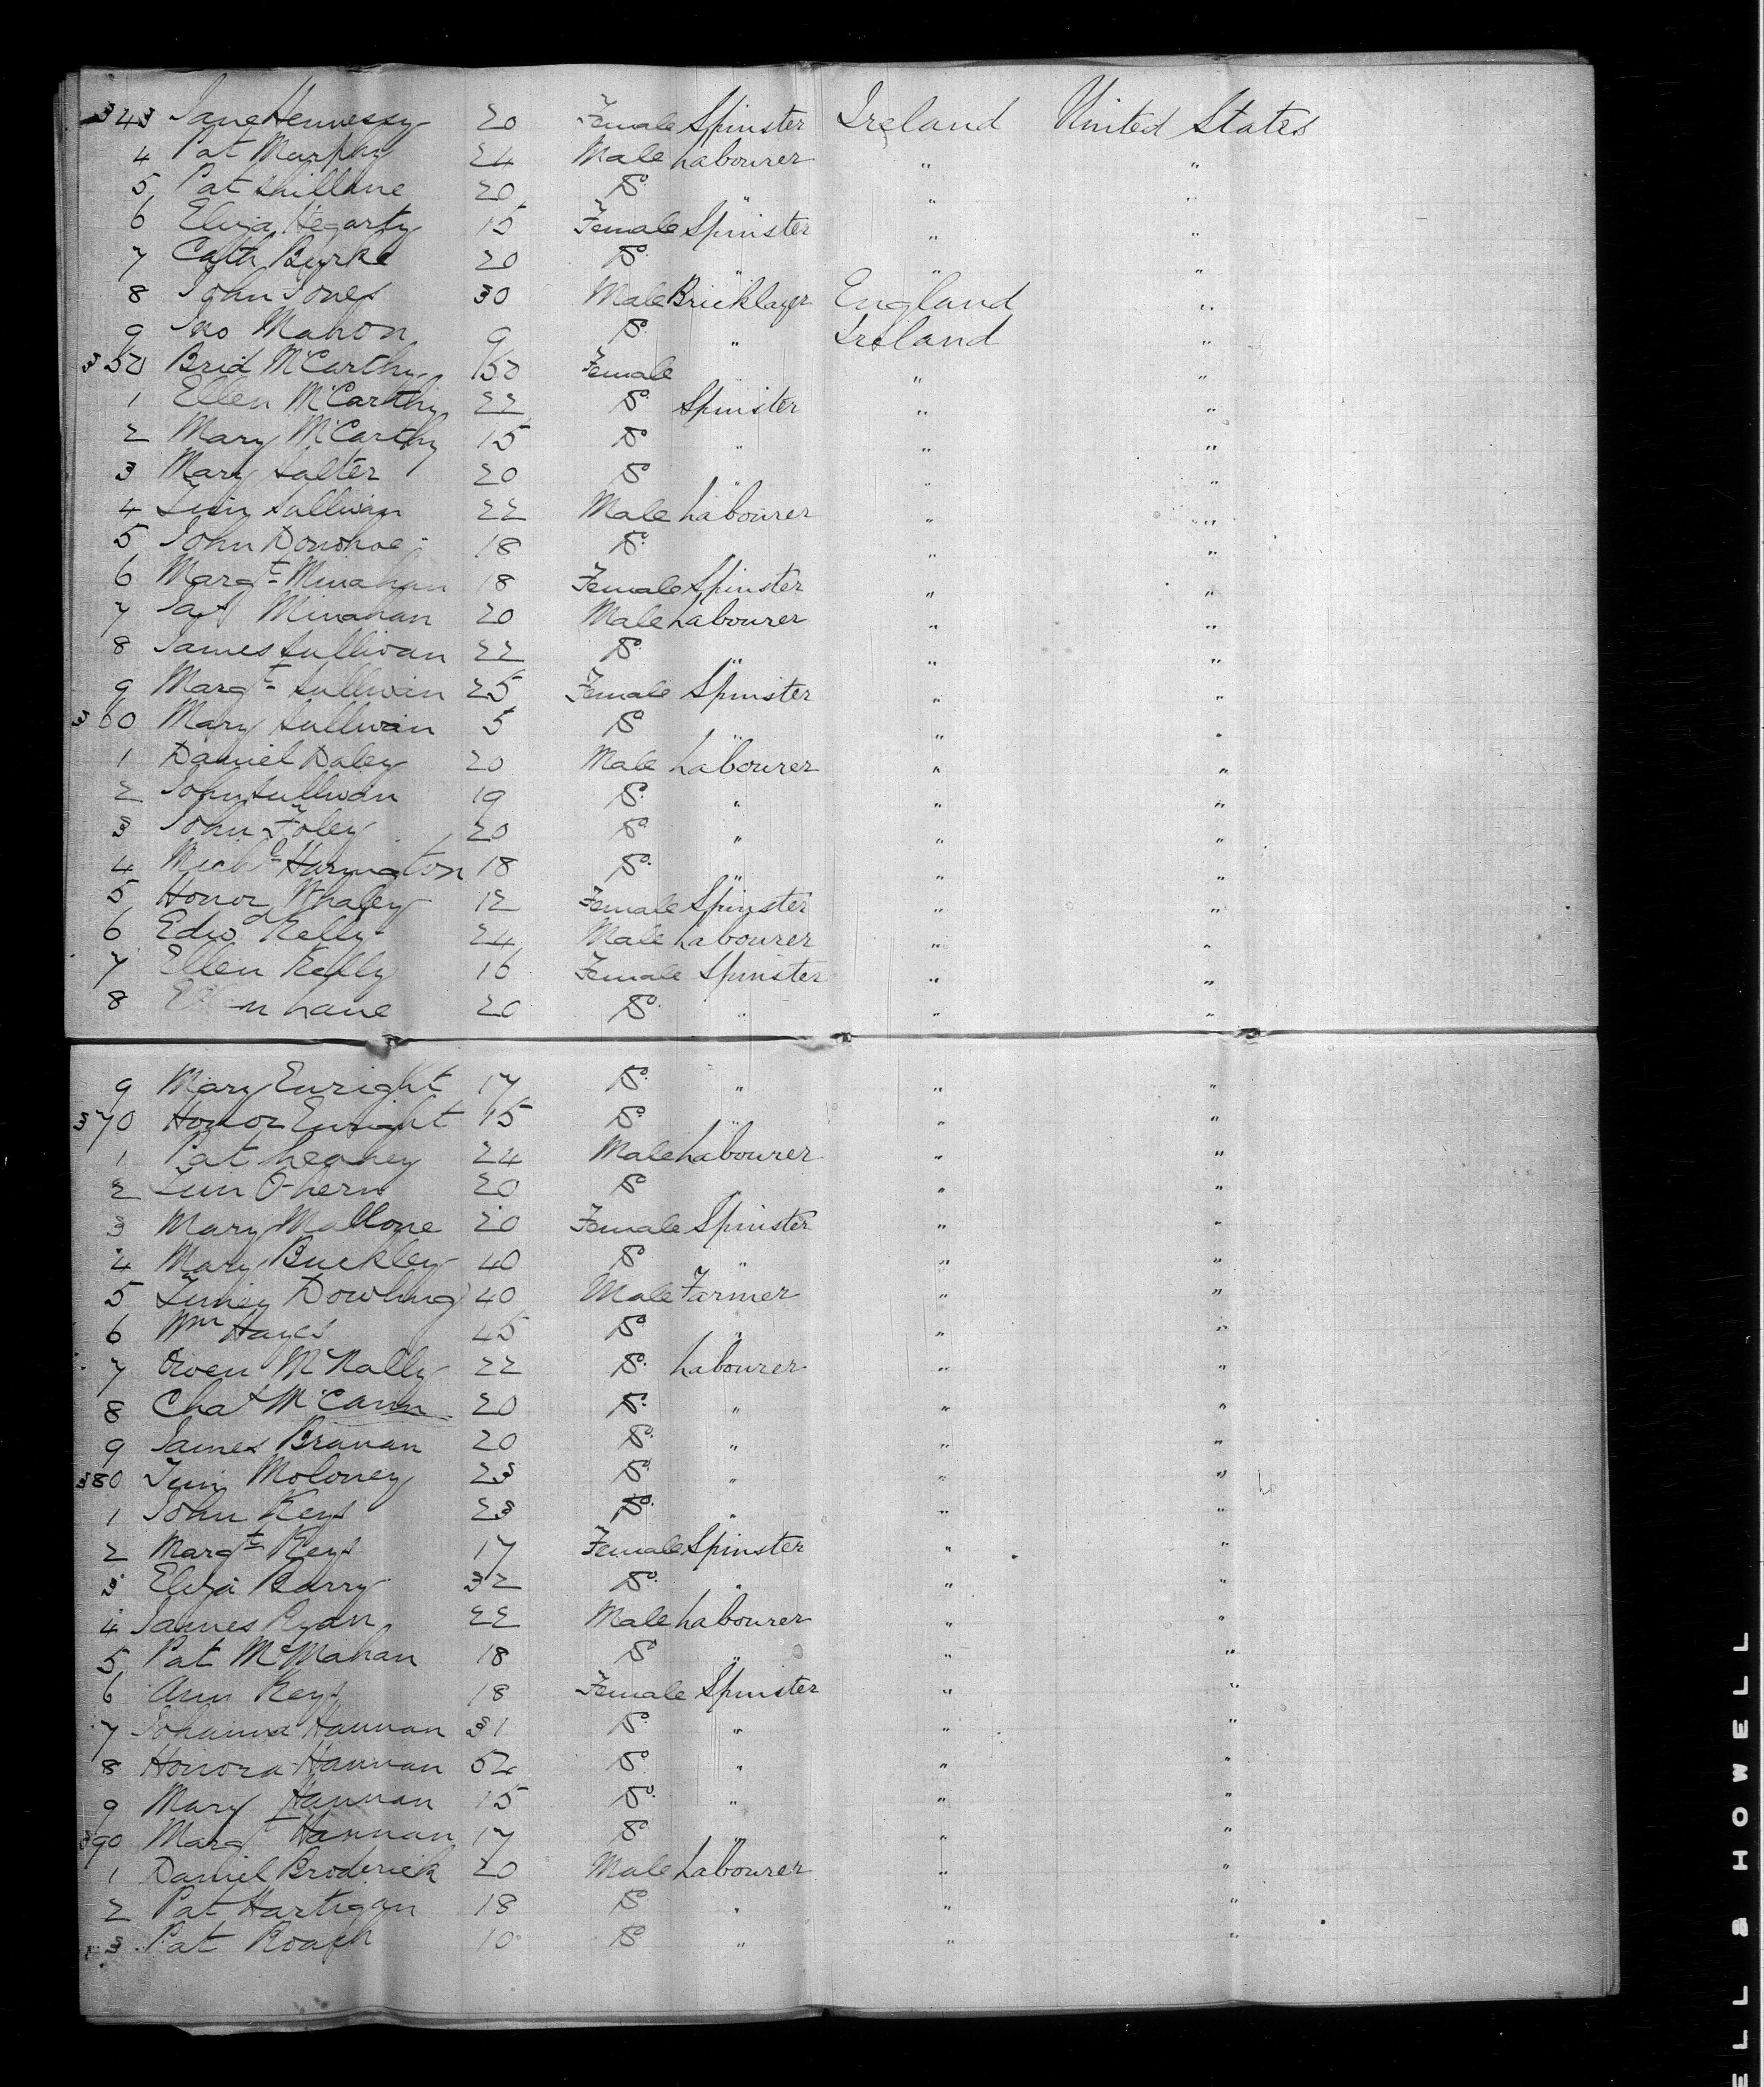 343 Jane Hennessy 20 Female Spinster Ireland United States
4 Pat Murphy 24 Male Labourer " "
5 Pat Sullivane 20 Do " " "
6 Eliza Hegarty 15 Female Spinster " "
7 Cath Burke 20 Do " " "
8 John Jones 30 Male Bricklayer England "
9 Jno Mahon 9 Do " Ireland "
350 Brid McCarthy 50 Female " "
1 Ellen McCarthy 22 Do Spinster " "
2 Mary McCarthy 15 Do " " "
3 Mary Salter 20 Do " " "
4 Tim Sullivan 22 Male Labourer " "
5 John Donohoe 18 Do " " "
6 Margt Minahan 18 Female Spinster " "
7 Jas Minahan 20 Male Labourer " "
8 James Sullivan 22 Do " " "
9 Margt Sullivan 25 Female Spinster " "
360 Mary Sullivan 5 Do " " "
1 Daniel Daley 20 Male Labourer " "
2 John Sullivan 19 Do " " "
3 John Foley 20 Do " " "
4 Michl Harington 18 Do " " "
5 Honor Whaley 12 Female Spinster " "
6 Edwd Kelly 24 Male Labourer " "
7 Ellen Kelly 16 Female Spinster " "
8 Lane 20 Do " " "
9 Mary Enright 17 Do " " "
370 Honor Enright 15 Do " " "
1 Pat Leahey 24 Male Labourer " "
2 Tim O'hern 20 Do " " "
3 Mary Mallone 20 Female Spinster " "
4 Mary Buckley 40 Do " " "
5 Dowling 40 Male Farmer " "
6 Wm Hayes 45 Do " " "
7 Owen McNally 22 Do Labourer " "
8 Chas McCann 20 Do " " "
9 James Branan 20 Do " " "
380 Tim Moloney 23 Do " " "
1 John Keys 23 Do " " "
2 Margt Keys 17 Female Spinster " "
3 Eliza Barry 32 Do " " "
4 James Ryan 22 Male Labourer " "
5 Pat McMahan 18 Do " " "
6 Ann Keys 18 Female Spinster " "
7 Johanna Hannan 31 Do " " "
8 Honora Hannan 52 Do " " "
9 Mary Hannan 15 Do " " "
390 Margt Hannan 17 Do " " "
1 Daniel Broderick 20 Male Labourer " "
2 Pat Hartigan 18 Do " " "
3 Pat Roach 10 Do " " "
ELL & HOWELL